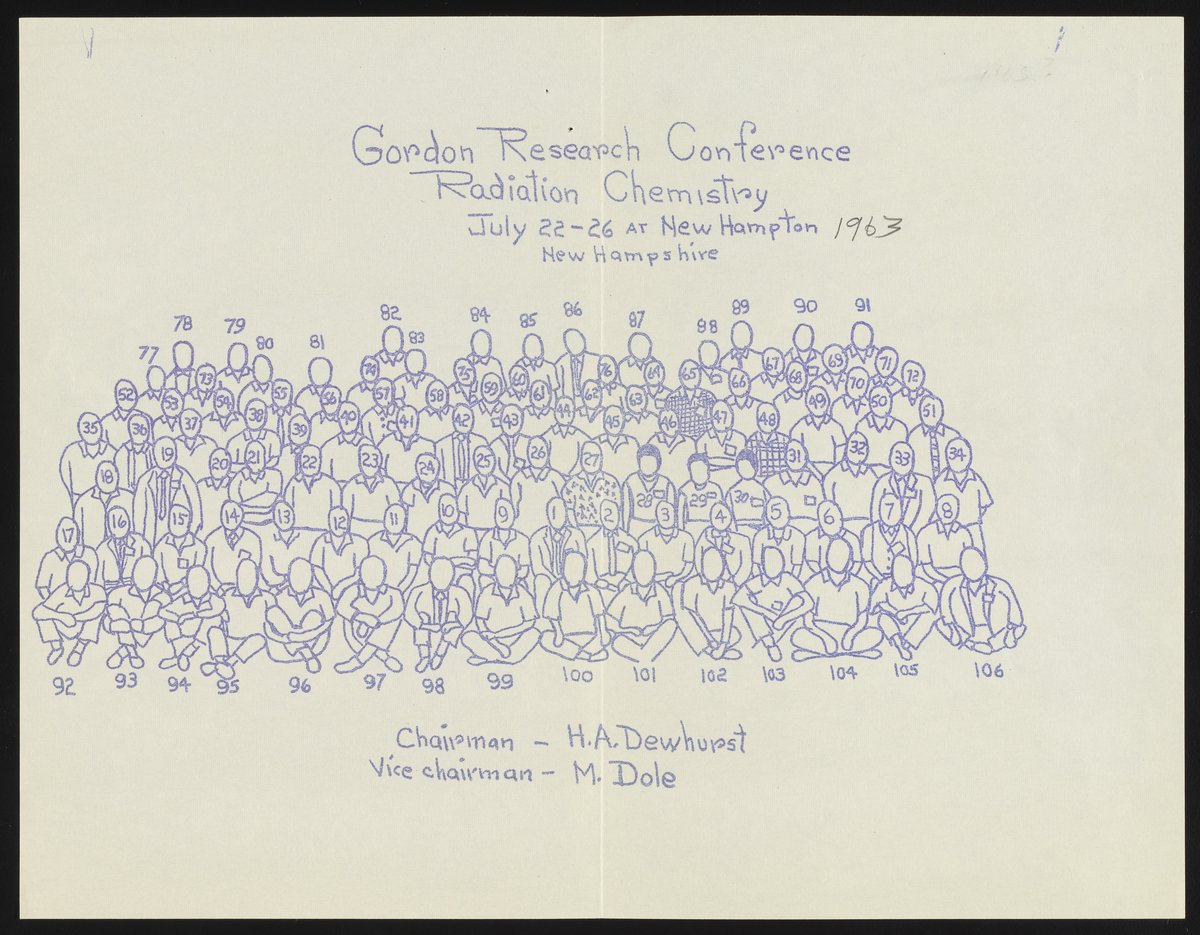 Gordon Research Conference
Radiation Chemistry
July 22-26 AT New Hampton 1963
New Hampshire
82 84 85 86 87 88 89 90 91
78 79 80 81 83
77
52 73 54 55 56 74 57 58 75 59 60 61 76 62 63 64 65 66 67 68 69 70 71 72
35 36 53 37 38 39 40 41 42 43 44 45 46 47 48 49 50 51
18 19 20 21 22 23 24 25 26 27 28 29 30 31 32 33 34
17 16 15 14 13 12 11 10 9 1 2 3 4 5 6 7 8
92 93 94 95 96 97 98 99 100 101 102 103 104 105 106
Chairman - H.A. Dewhurst
Vice chairman - M. Dole